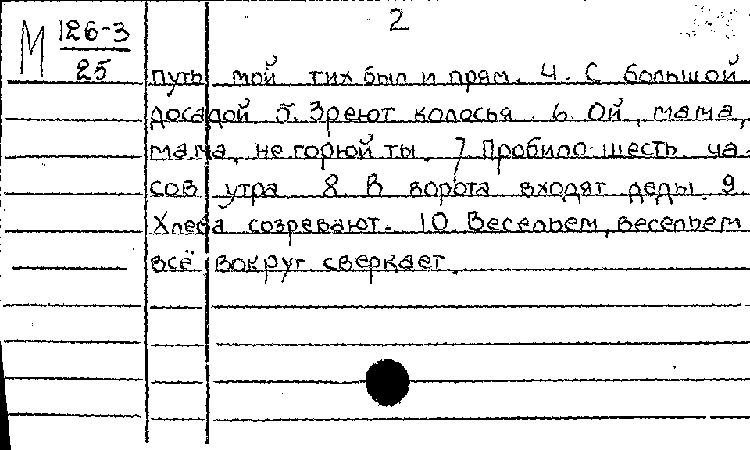 2
М 126-3
25
путь мой тих был и прям. 4. С большой
досадой 5. Зреют колосья. 6. Ой, мама,
мама, не горюй ты. 7 Пробило шесть ча-
сов утра 8. В ворота входят деды. 9.
Хлеба созревают. 10. Весельем, весельем
всё вокруг сверкает.